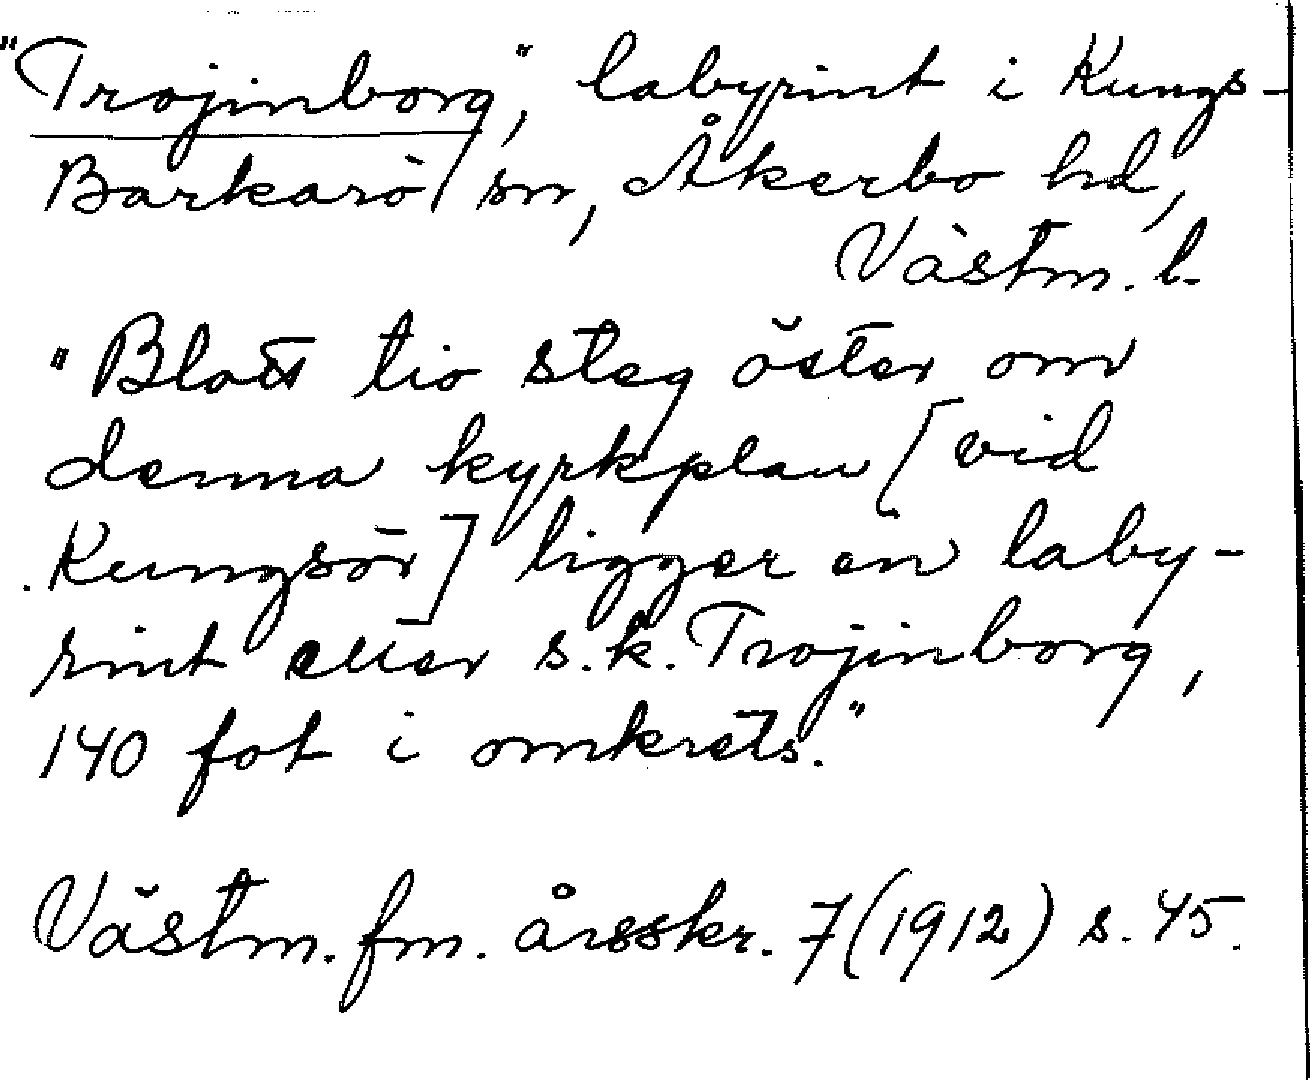 "Trojinborg", labyrint i Kungs-
Barkarö sn, Åkerbo hd,
Västm. l.
"Blott tio steg öster om
denna kyrkplan [vid
Kungsör] ligger en laby-
rint eller s.k. Trojinborg,
140 fot i omkrets."
Västm. fm. årsskr. 7 (1912) s. 45.